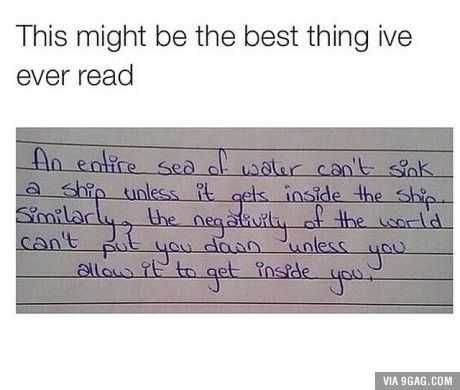 This might be the best thing ive
ever read
An entire sea of water can't sink
a ship unless it gets inside the ship.
Similarly, the negativity of the world
can't put you down unless you
allow it to get inside you.
VIA 9GAG.COM